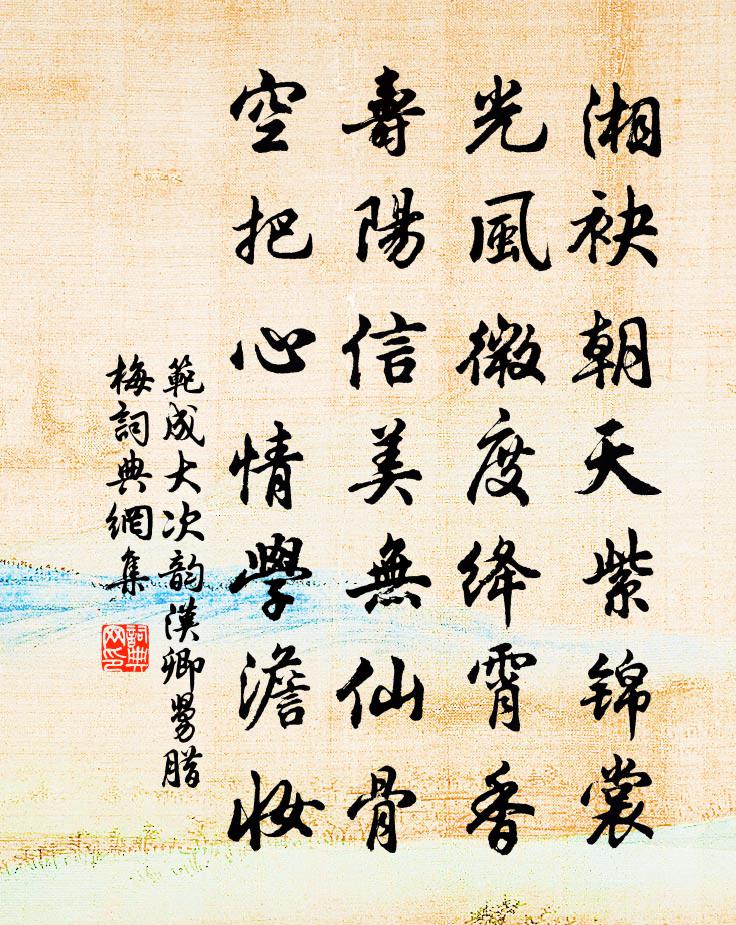 湘袂朝天紫錦裳
光風微度绛霄香
壽陽信美無仙骨
空把心情學澹妝
範成大次韵漢卿舅腊
梅詞典網集
詞典网印